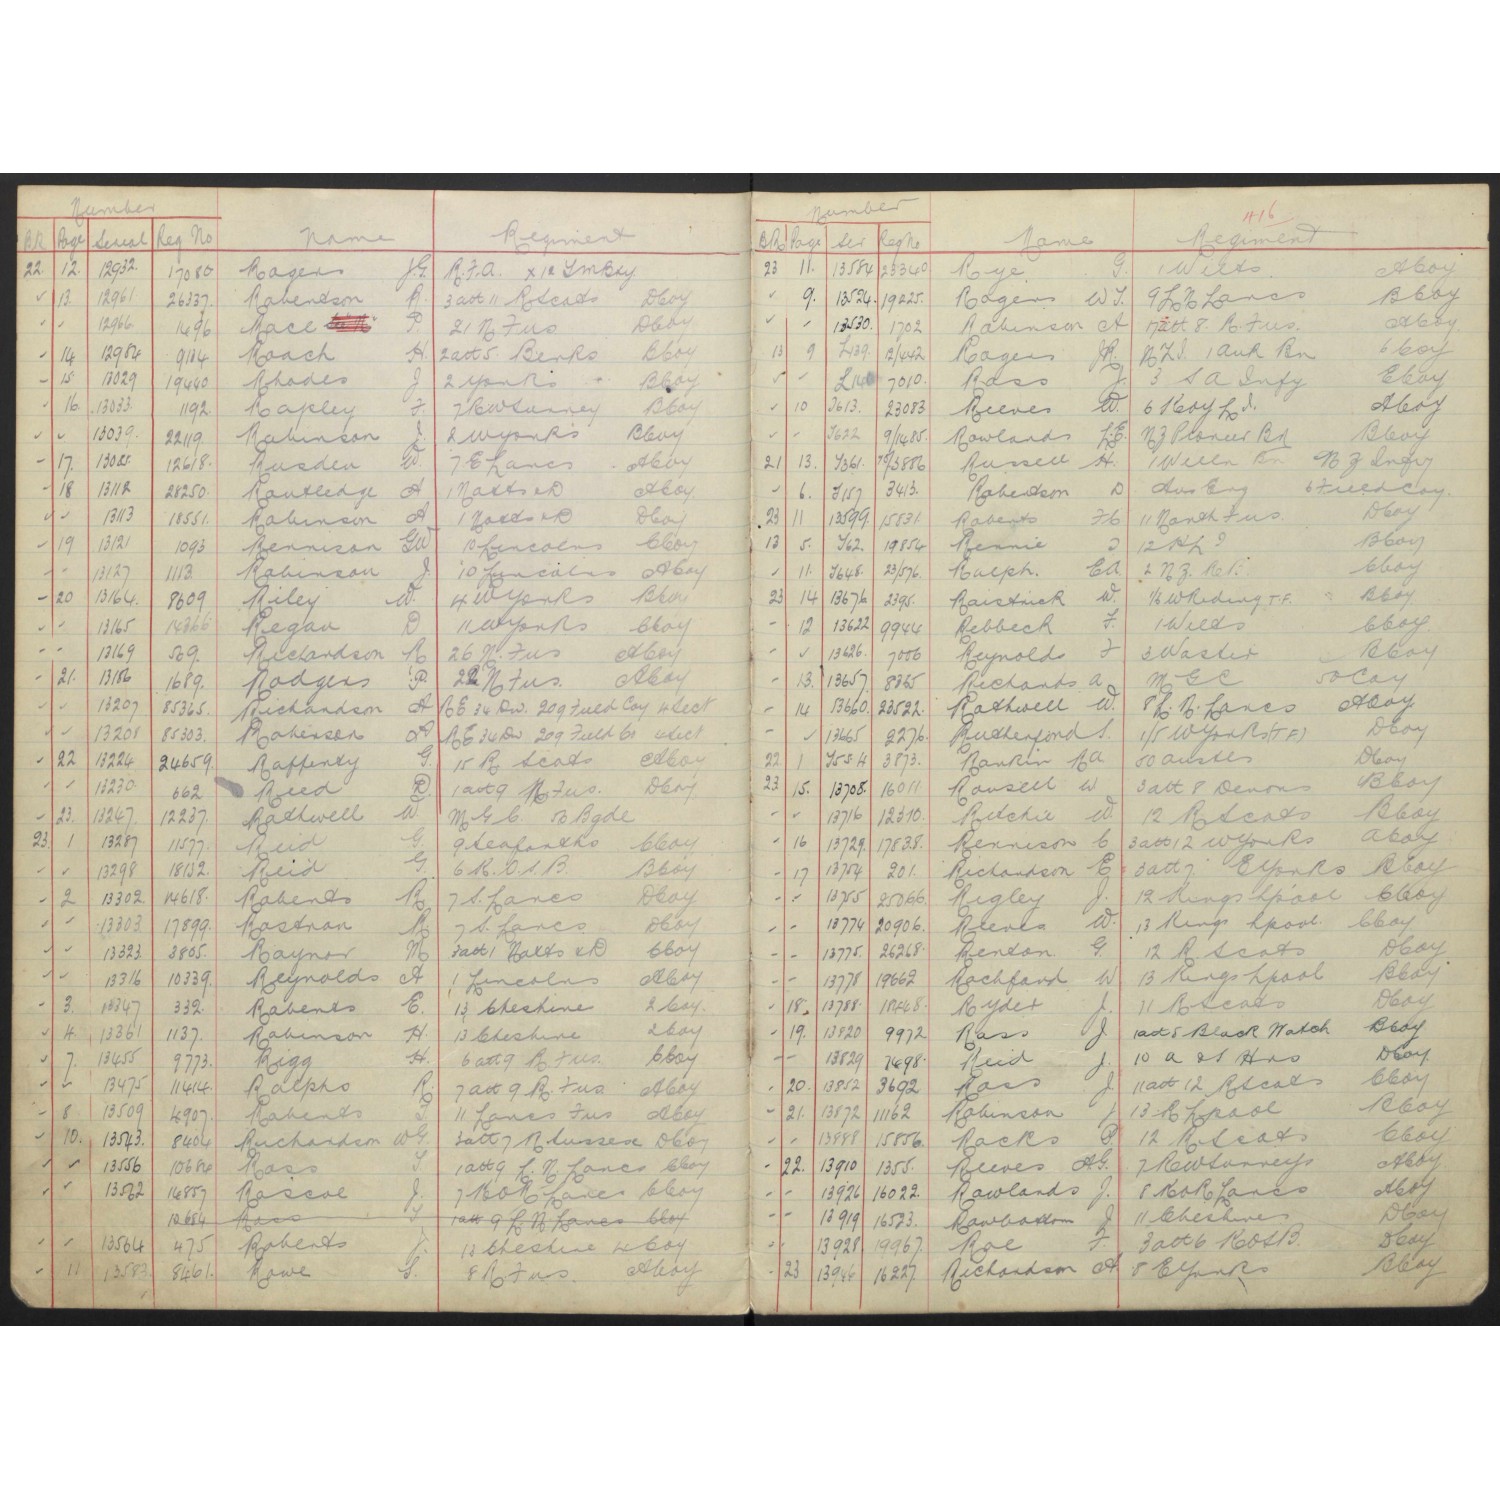 Number
B.R. Page Serial Reg No Name Regiment
22. 12. 12932. 17080 Rogers J.G. R.F.A. x 12 Tm Bty
✓ 13. 12961 26337. Robertson R. 3 att 11 R Scots D Coy
✓ ✓ 12966 1496 Race P. 21 N. Fus. D Coy
- 14 12984 9134 Roach H. 2 att 5 Berks B Coy
- 15. 13029 19440 Rhodes J. 2 Yorks B Coy
- 16. 13033. 1192. Rapley F. 7 R W Surrey B Coy
✓ ✓ 13039. 22119. Robinson J. 2 W Yorks B Coy
- 17. 12618. Rusden W. 7 E Lancs A Coy
- 18 13112 28250. Routledge A 1 Notts & D A Coy
✓ ✓ 13113 18551. Robinson A 1 Notts & D D Coy
- 19 13121 1093 Rennison GW 10 Lincolns C Coy
- - 13127 1113 Robinson J. 10 Lincolns A Coy
- 20 13164. 8609 Riley W. 4 W Yorks B Coy
- - 13165 Regan D 11 W Yorks C Coy
- - 13169 509. Richardson R 26 N. Fus A Coy
- 21. 13186 1689. Rodgers P. 22 N Fus. A Coy
- - 13207 85365. Richardson A R E 34 Div. 209 Field Coy 4 Sect
- - 13208 85303. Roberson R E 34 Div 209 Field Co 4 Sect
✓ 22 13224 24659. Rafferty G. 15 R Scots A Coy
- - 13230 662 Reed D. 1 att 9 N Fus. D Coy
- 23. 13247. 12237. Rothwell W. M G C. 50 Bgde
23. 1 13287 11577. Reid G. 9 Seaforths C Coy
✓ ✓ 13298 18132. Reid G. 6 K.O.S.B. B Coy
- 2 13302 14618. Roberts R. 7 S. Lancs D Coy
- - 13303 17899. Rostron R 7 S. Lancs D Coy
- - 13323 3805. Raynor M 3 att 1 Notts & D C Coy
- - 13316 10339. Reynolds A 1 Lincolns A Coy
- 3. 13347 332. Roberts E. 13 Cheshire 2 Coy.
- 4. 13361 1137. Robinson H. 13 Cheshire 2 Coy
- 7. 13455 9773. Rigg H. 6 att 9 R. Fus. C Coy
- - 13475 11414. Ralphs R. 7 att 9 R. Fus. A Coy
- 8. 13509 4907. Roberts T 11 Lancs Fus A Coy
- 10. 13543. 8404 Richardson WG. 3 att 7 R Sussex D Coy
- - 13556 10684 Ross T. 1 att 9 L. N Lancs C Coy
✓ ✓ 13562 14857 Roscoe J. 7 K O R Lancs C Coy
10684 Ross T 1 att 9 L N Lancs C Coy
- - 13564 475 Roberts J. 13 Cheshire 4 Coy
- 11 13583 8461. Rowe G. 8 R Fus. A Coy
Number 1416
B.R. Page Ser Reg No Name Regiment
23 11. 13584 23340 Rye G. 1 Wilts. A Coy
✓ 9. 13524. 19225. Rogers W T. 9 L N Lancs B Coy
✓ ✓ 13530. 1702 Robinson A 17 att 8 R. Fus. A Coy
13 9 L139. 12/442 Rogers JR. N Z I. 1 Auk Bn 6 Coy
✓ - 7010. Ross J. 3 S A Infy C Coy
✓ 10 J613. 23083 Reeves W. 6 Koy L I. A Coy
✓ - J622 9/1485. Rowlands LE. NZ Pioneer Bn B Coy
21 13. J361. Russell H. 1 Welln Bn N Z Infy
- 6. J157 3413. Robertson D Aus Eng 6 Field Coy.
23 11 13599. 15831. Roberts F C 11 North Fus. D Coy
13 5. J62. 19854 Rennie J 12 H L I B Coy
✓ 11. J648. 23/576. Ralph. EA 2 N.Z. R.B. C Coy
23 14 13676 2395. Raistrick W. 1/6 W Riding T.F. B Coy
- 12 13622 9944 Rebbeck F. 1 Wilts C Coy.
- ✓ 13626. 7006 Reynolds F 3 Worster B Coy
- 13. 13657. 8865 Richards A M G C 50 Coy
- 14 13660. 23522. Rothwell W. 8 L. N. Lancs A Coy.
- ✓ 13665 2276. Rutherford S. 1/5 W Yorks (T F) D Coy
22 1 J554 3873. Rankin R A 50 Austes D Coy
23 15. 13708. 16011 Rousell W 3 att 8 Devons B Coy
- - 13716 12310. Ritchie W 12 R Scots B Coy
- 16 13729. 17838. Rennison C 3 att 12 W Yorks A Coy
- 17 13754 201. Richardson E 3 att 7 E Yorks B Coy
- - 13755 25066. Rigley J. 12 Kings Lpool C Coy
- - 13774 20906. Reeves W. 13 Kings Lpool. C Coy
- - 13775. 26268. Renton G. 12 R Scots D Coy
- - 13778 19662 Rochford W 13 Kings Lpool B Coy
- 18. 13788. 18448. Ryder J. 11 R Scots D Coy
- 19. 13820 9972 Ross J 1 att 8 Black Watch B Coy
- - 13829 7498. Reid J. 10 A & S Hrs D Coy.
- 20. 13852 3692 Ross J 11 att 12 R Scots C Coy
- 21. 13872 11162 Robinson J 13 K Lpool B Coy
- - 13888 15856. Rocks P. 12 R Scots C Coy
- 22. 13910 1355. Reeves AG. 7 R W Surreys A Coy
- - 13926 16022. Rowlands J. 8 K O R Lancs A Coy
- - 13919 16523. Rowbottom J 11 Cheshires D Coy
- - 13928 19967. Roe F. 3 att 6 K O S B. D Coy
- 23 13946 16227. Richardson A 8 E Yorks B Coy